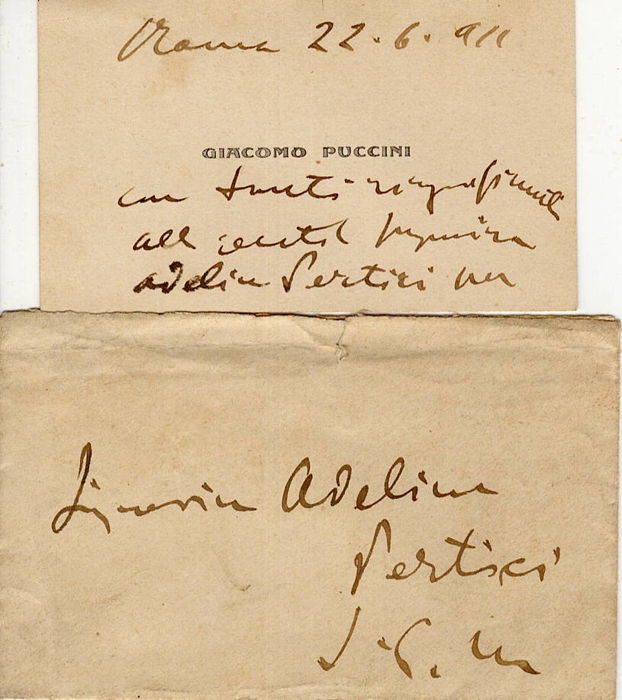 Roma 22.6.911
GIACOMO PUCCINI
con tanti ringraziamenti
alla gentil signorina
Adelina Pertici per
Signorina Adelina
Pertici
S.G.M